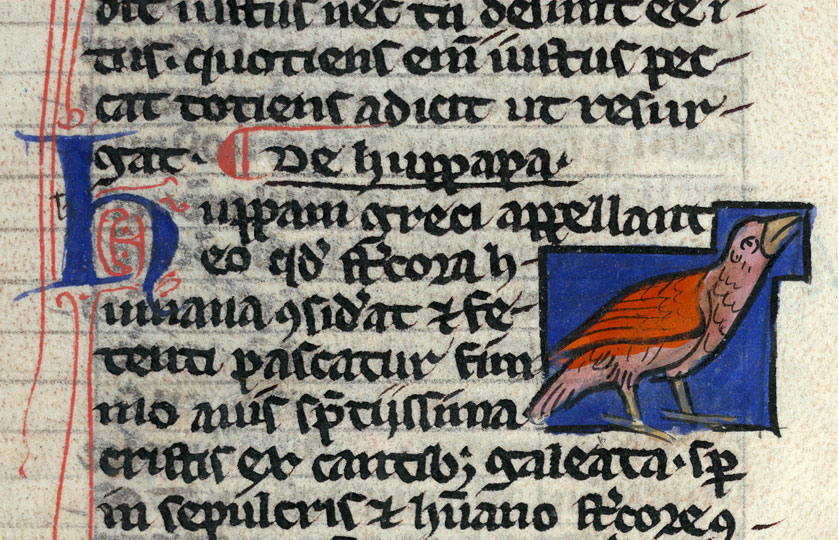 dit iustus nec tu delinit ee r-
tus. quotiens em̅ iustus pec-
cat totiens adicit ut resur-
gat. De huppapa.
huppam greci appellant
eo qd' st'cora h-
umana ꝯsid'at & fe-
tenti pascatur fim
mo auis sp̅tiissima
cristis ex cantib; galeata. sp
in sepulcris & hu̅ano st'core ꝯ-